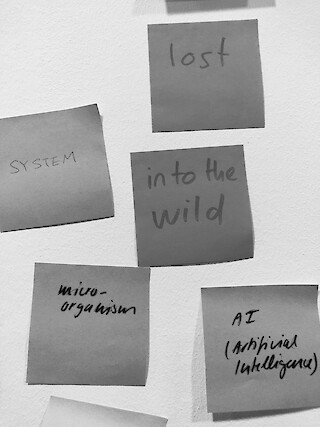 lost
SYSTEM
into the
wild
micro-
organism
AI
(Artificial
Intelligence)